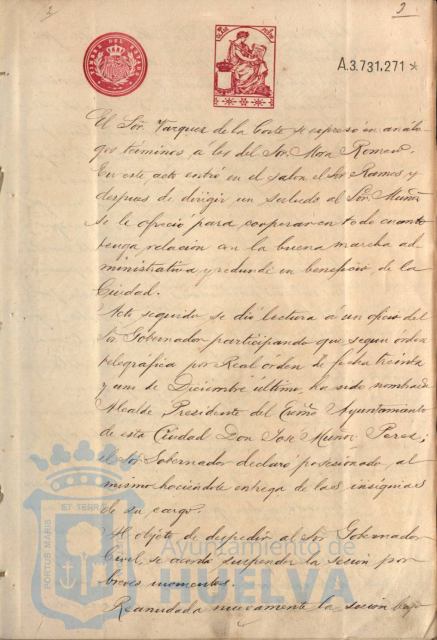 3
A.3.731.271 *
El Sōr. Vazquez de la Corte se expresó en análo-
gos términos a los del Sor. Mora Romero.
En este acto entró en el salon el Sōr Ramos, y
despues de dirigir un saludo al Sōr. Muñoz
se le ofreció para cooperar en todo cuanto
tenga relación con la buena marcha ad
ministrativa y redunde en beneficio de la
Ciudad.
Acto seguido se dió lectura á un oficio del
Sor Gobernador participando que segun orden
telegráfica por Real órden de fecha treinta
y uno de Diciembre último, ha sido nombrado
Alcalde Presidente del Excmo Ayuntamiento
de esta Ciudad Don José Muñoz Perez;
el Sor Gobernador declaró posesionado, al
mismo haciéndole entrega de las insignias
de su cargo.
Al objeto de despedir al Sōr Gobernador
Civil, se acordó suspender la sesión por
breves momentos.
Reanudada nuevamente la sesión bajo
Ayuntamiento de
HUELVA
PORTUS MARIS ET TERRAE